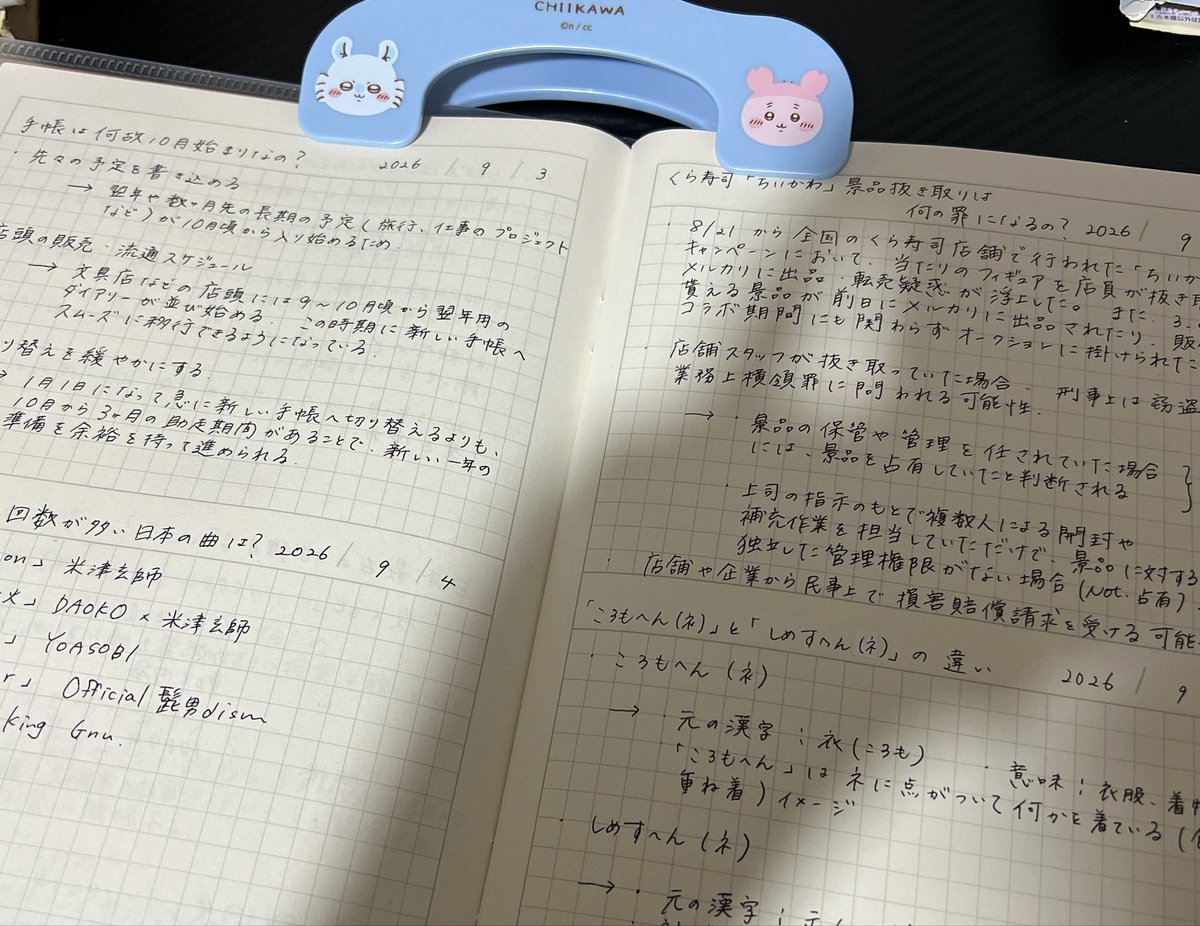 CHIIKAWA
©n/cc
手帳は何故10月始まりなの? 2026 / 9 / 3
・先々の予定を書き込める
→ 翌年や数ヶ月先の長期の予定(旅行、仕事のプロジェクト
など)が10月頃から入り始めるため.
店頭の販売・流通スケジュール
→ 文具店などの店頭には9〜10月頃から翌年用の
ダイアリーが並び始める. この時期に新しい手帳へ
スムーズに移行できるようになっている.
り替えを緩やかにする.
→ 1月1日になって急に新しい手帳へ切り替えるよりも、
10月から3ヶ月の助走期間があることで、新しい一年の
準備を余裕を持って進められる.
回数が多い日本の曲は? 2026 / 9 4
on」 米津玄師
」 DAOKO × 米津玄師
」 YOASOBI
r」 Official髭男dism
King Gnu.
くら寿司「ちいかわ」景品抜き取りは
何の罪になるの? 2026 / 9
・8/21から全国のくら寿司店舗で行われた「ちいか
キャンペーンにおいて、当たりのフィギュアを店員が抜き
メルカリに出品・転売疑惑が浮上した。また、3.
貰える景品が前日にメルカリに出品されたり、販
コラボ期間にも関わらずオークションに掛けられた
・店舗スタッフが抜き取っていた場合、刑事上は窃盗
業務上横領罪に問われる可能性.
→ ・景品の保管や管理を任されていた場合
には、景品を占有していたと判断される
・上司の指示のもとで複数人による開封や
補充作業を担当していただけで、景品に対する
独立した管理権限がない場合(Not.占有)
・店舗や企業から民事上で損害賠償請求を受ける可能
「ころもへん(衤)」と「しめすへん(ネ)」の違い 2026 / 9
・ころもへん(衤)
→ ・元の漢字:衣(ころも) ・意味:衣服、着物
「ころもへん」はネに点がついて何かを着ている(
重ね着)イメージ
・しめすへん(ネ)
→ ・元の漢字:示(